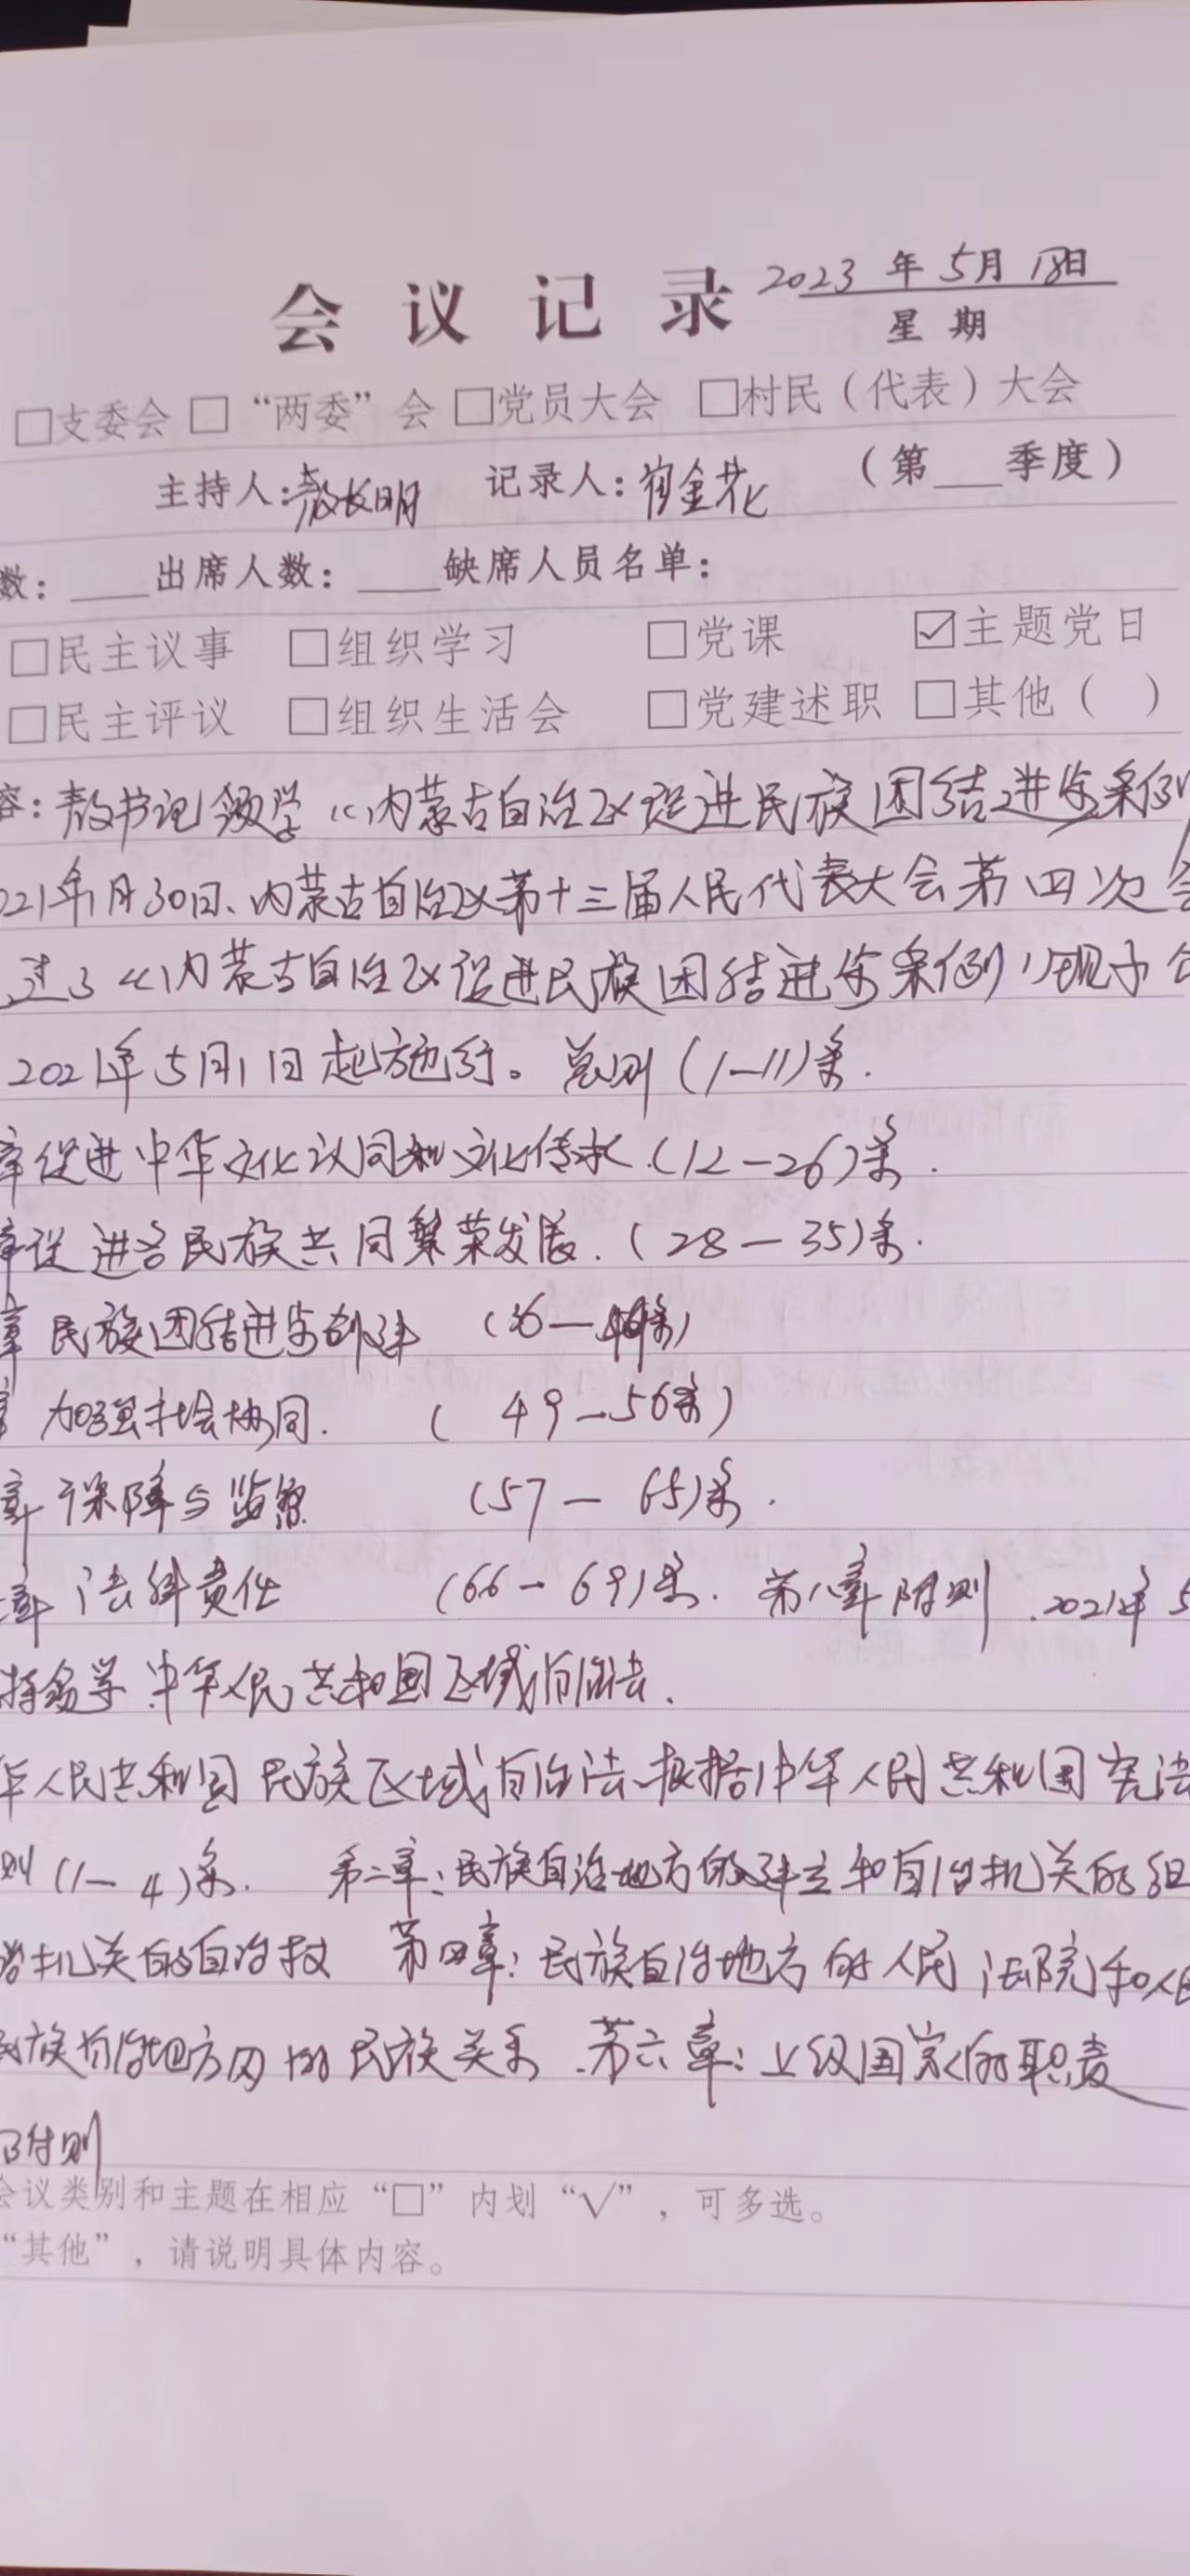 会议记录 2023年5月18日
星期
□支委会 □“两委”会 □党员大会 □村民（代表）大会
主持人：敖长明 记录人：崔金花 （第___季度）
数：____出席人数：____缺席人员名单：
□民主议事 □组织学习 □党课 ☑主题党日
□民主评议 □组织生活会 □党建述职 □其他（ ）
容：敖书记领学《内蒙古自治区促进民族团结进步条例
021年1月30日、内蒙古自治区第十三届人民代表大会第四次会
过了《内蒙古自治区促进民族团结进步条例》现予公
2021年5月1日起施行。总则（1—11）条.
章促进中华文化认同和文化传承.（12—26）条.
章促进各民族共同繁荣发展.（28—35）条.
章 民族团结进步创建 （36—
加强社会协同. （49—56条）
章 保障与监督 （57—65）条.
章 法律责任 （66—69）条. 第八章 附则 .2021年5
持领学 中华人民共和国区域自治法.
华人民共和国民族区域自治法、根据中华人民共和国宪法
则（1—4）条. 第二章：民族自治地方的建立和自治机关的组
治机关的自治权 第四章：民族自治地方的人民法院和人民
民族自治地方内的民族关系.第六章：上级国家的职责
附则
会议类别和主题在相应“□”内划“√”，可多选。
“其他”，请说明具体内容。